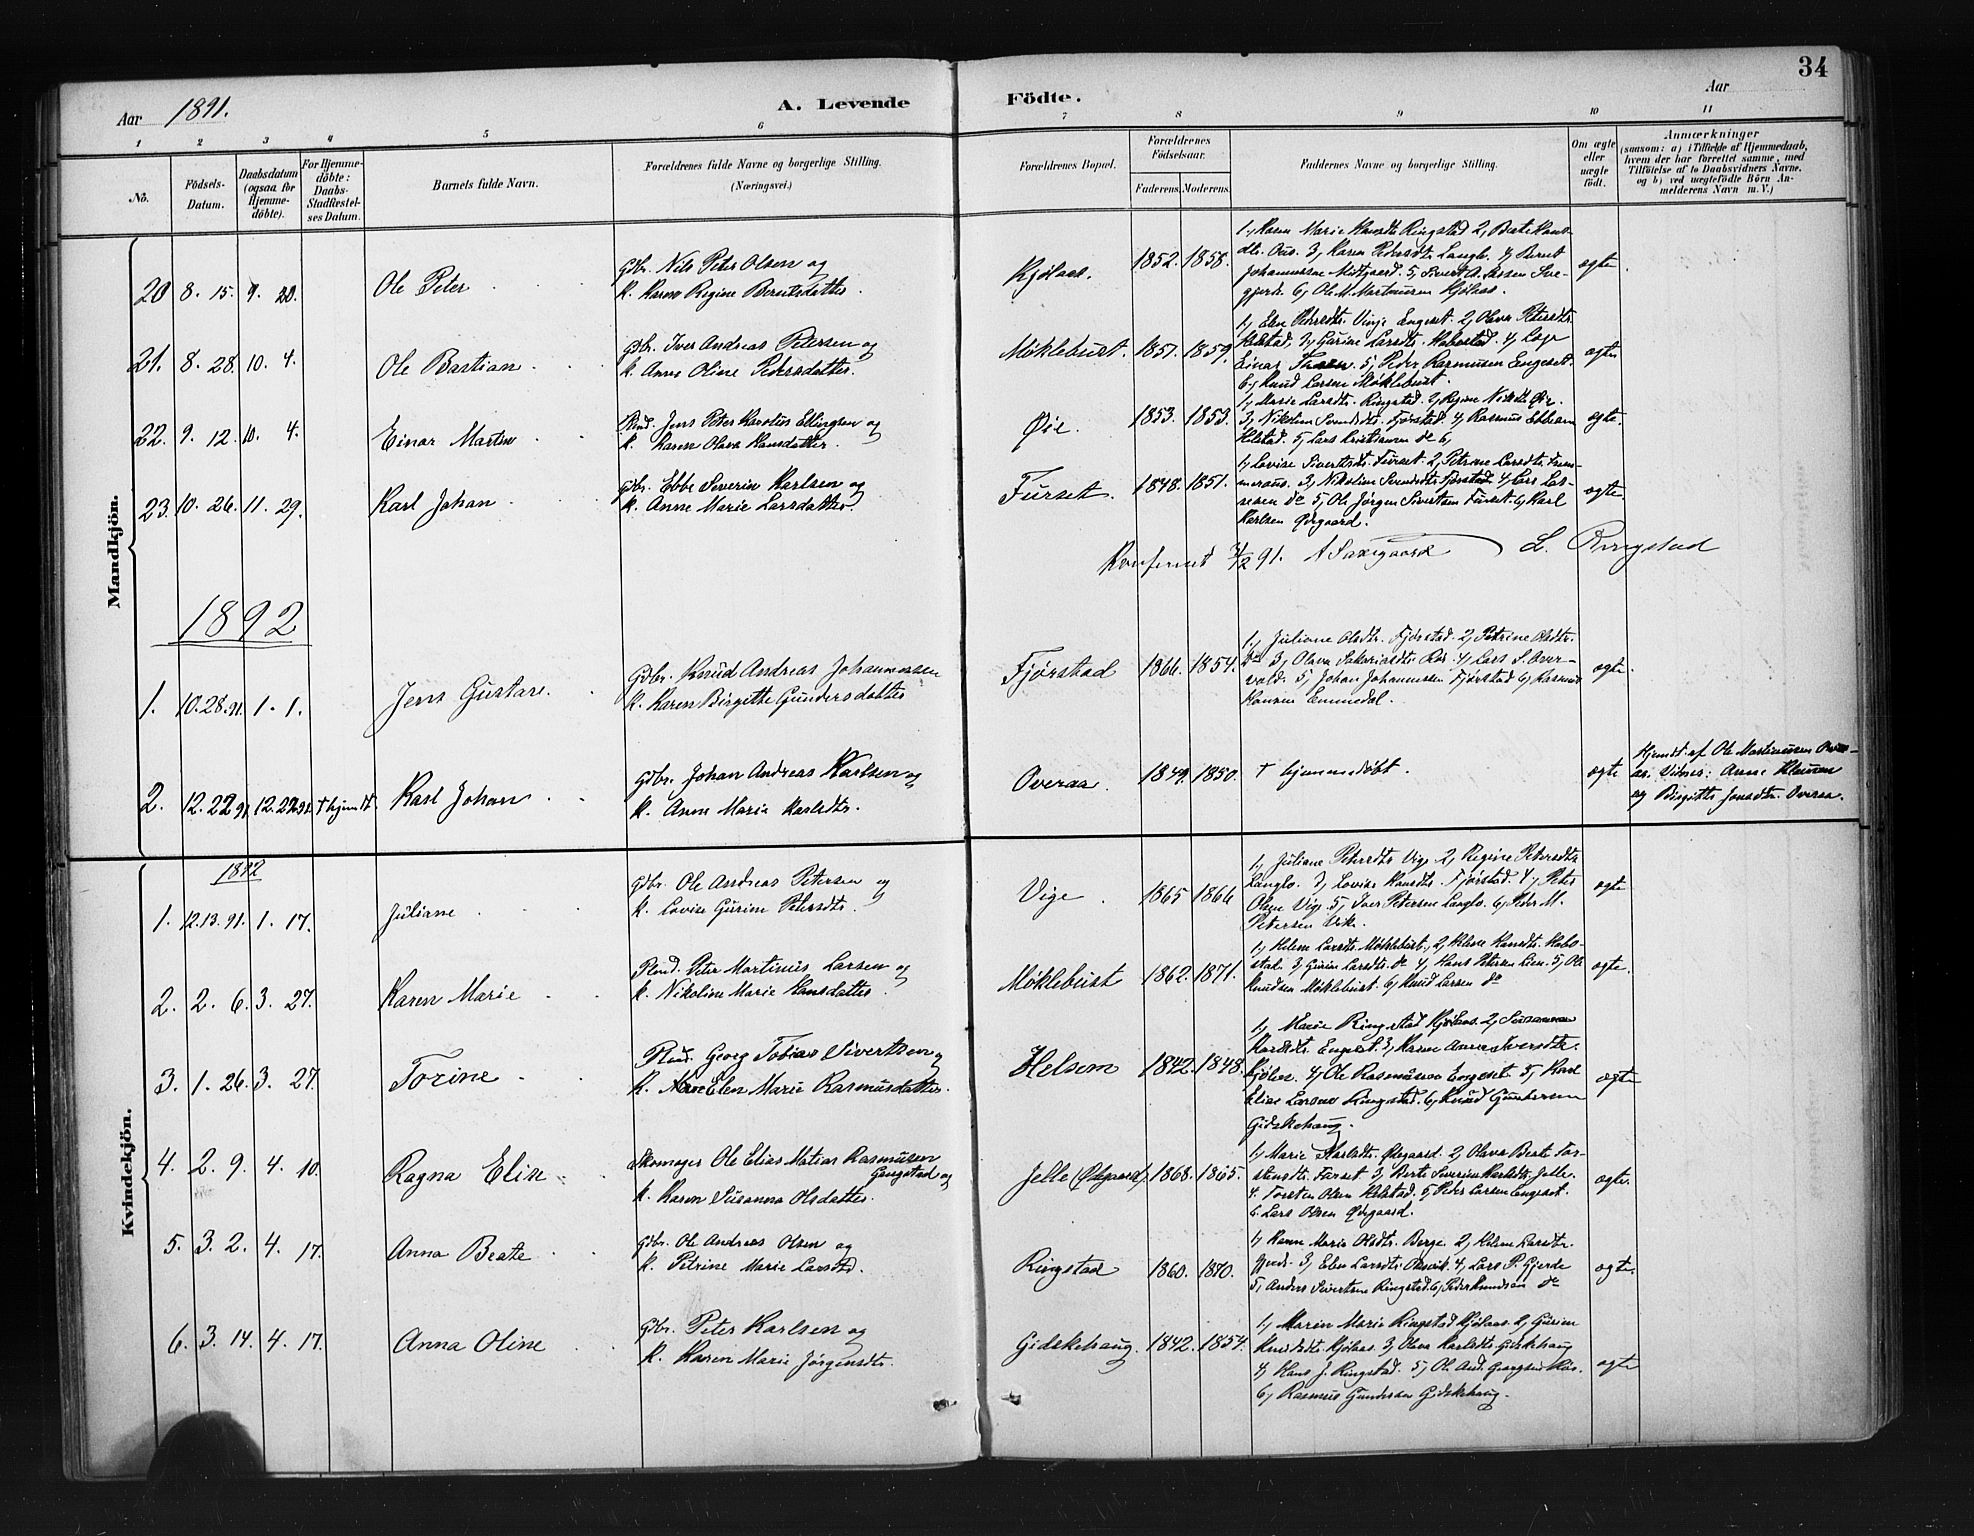 34
Aar 1891.
A. Levende Födte.
Aar
1 2 3 4 5 6 7 8 9 10 11
No.
Födsels-Datum.
Daabsdatum (ogsaa for Hjemme-döbte).
For Hjemme-döbte: Daabs-Stadfæstel-ses Datum.
Barnets fulde Navn.
Forældrenes fulde Navne og borgerlige Stilling.
(Næringsvei.)
Forældrenes Bopæl.
Forældrenes Födselsaar.
Faderens. Moderens.
Faddernes Navne og borgerlige Stilling.
Om ægte eller uægte födt.
Anmærkninger
(saasom: a) i Tilfælde af Hjemmedaab,
hvem der har forrettet samme, med
Tilföielse af to Daabsvidners Navne,
og b) ved uægtefödte Börn An-
melderens Navn m. V.)
Mandkjön.
20 8. 15. 9. 20. Ole Peter Gbr. Nils Peter Olsen og
K. Karen Regine Berntsdatter. Kjølaas. 1852. 1858. ægte.
1, Karen Marie Hansdtr Ringstad 2, Berte Hans-
dtr. Aus. 3, Karen Pedersdtr. Langlo. 4, Bernt
Johannessen Midtgaard. 5, Sivert A. Lassen
6, Ole M. Martinusen Kjølaas.
21. 8. 28. 10. 4. Ole Bastian Gbr. Iver Andreas Petersen og
K. Anne Oline Pedersdatter. Møklebust. 1851. 1859. ægte
1, Elen Pedersdtr. Vinje Engeset. 2, Olava Petersdtr.
Helstad, 3, Gurine Larsdtr. Habostad. 4,
Einar 5, Peder Rasmusen Engeset.
6, Knud Larsen Møklebust.
22. 9. 12. 10. 4. Einar Martin Rmd. Jens Peter Karolius Ellingsen og
K. Karen Olava Hansdatter. Øie. 1853. 1853. ægte.
1, Marie Larsdtr. Ringstad. 2, Regine Nilsdtr Øie.
3, Nikoline Svendsdtr. Fjørstad. 4, Rasmus Ebbesen
Helstad. 5, Lars Kristiansen do 6,
23. 10. 26. 11. 29. Karl Johan Gbr. Ebbe Severin Karlsen og
K. Anne Marie Larsdatter. Furset. 1848. 1851. ægte.
1, Lovise Sivertsdtr. Furset. 2, Petrine Larsdtr.
3, Nikoline Svendsdtr Fjørstad. 4, Lars Las-
sesen do 5, Ole Jørgen Sivertsen Furset. 6, Karl
Karlsen Ødegaard.
Konfereret 91. A Saxegaard L. Ringstad
1892
1. 10. 28. 91. 1. 1. Jens Gustav. Gbr. Knud Andreas Johannessen
K. Karen Birgitte Gundersdatter Fjørstad 1866. 1854. ægte.
1, Juliane Olsdtr. Fjørstad. 2, Petrine Olsdtr.
do 3, Olava Sakariasdtr. Røs. 4, Lars S. Over-
vold. 5, Johan Johannessen Fjørstad 6, Rasmus
Hansen Emmedal.
2. 12. 22 91. 12. 22 91. † hjemdt. Karl Johan Gbr. Johan Andreas Karlsen og
K. Anne Marie Karlsdtr. Overaa. 1849. 1850. † hjemmedøbt. ægte
Hjemdt. af Ole Martinusen Over-
aa. Vidner: Anne Klausen
og Birgitte Jonsdtr. Overaa.
Kvindekjön.
1892
1. 12. 13. 91. 1. 17. Juliane Gbr. Ole Andreas Petersen og
K. Lovise Gurine Petersdtr. Vige. 1865 1866 ægte
1, Juliane Petersdtr Vige 2, Regine Petersdtr.
Langlo. 3, Lovise Hansdtr. Fjørstad. 4, Peter
Olsen Vige. 5, Iver Petersen Langlo. 6, Peder M.
Petersen Vik.
2. 2. 6. 3. 27. Karen Marie Rmd. Peter Martinus Larsen og
K. Nikoline Marie Hansdatter. Møklebust 1862. 1871. ægte.
1, Helene Larsdtr. Møklebust. 2, Helene Hansdtr. Habo-
stad. 3, Gurine Larsdtr. do 4, Hans Petersen Lien. 5, Ole
Knudsen Møklebust. 6, Knud Larsen do
3. 1. 26. 3. 27. Torine Rmd. Georg Tobias Sivertsen og
K. Elen Marie Rasmusdatter. Helsem 1842. 1848. ægte
1, Marie Ringstad Kjølaas. 2, Susanna
Engeset. 3, Karen Anne Iversdtr.
Kjølaas. 4, Ole Rasmusen Engeset. 5, Karl
Elias Larsen Ringstad. 6, Knud Gundersen
Gidskehaug.
4. 2. 9. 4. 10. Ragna Elise Skomager Ole Elias Matias Rasmusen
Gangstad og
K. Karen Susanna Olsdatter. Jelle (Ødegaard). 1868. 1865. ægte.
1, Marie Karlsdtr. Ødegaard. 2, Olava Berte Tor-
stensdtr. Furset. 3, Berte Severine Karlsdtr. Jelle.
4. Torsten Olsen Helstad. 5, Peder Larsen Engeset.
6. Lars Olsen Ødegaard.
5. 3. 2. 4. 17. Anna Beate Gbr. Ole Andreas Olsen og
K. Petrine Marie Larsdtr. Ringstad 1860. 1870. ægte.
1, Karen Marie Olsdtr. Berge. 2, Helene Larsdtr.
Gjerde. 3, Elen Larsdtr. 4, Lars P. Gjerde
5, Anders Sivertsen Ringstad. 6, Peder Knudsen do
6. 3. 14. 4. 17. Anna Oline Gbr. Peter Karlsen og
K. Karen Marie Jørgensdtr. Gidskehaug. 1842. 1854. ægte
1, Maren Marie Ringstad Kjølaas. 2, Gurine
Knudsdtr. Kjølaas. 3, Olava Karlsdtr. Gidskehaug
4, Hans J. Ringstad. 5, Ole And. Røs.
6, Rasmus Gundersen Gidskehaug.